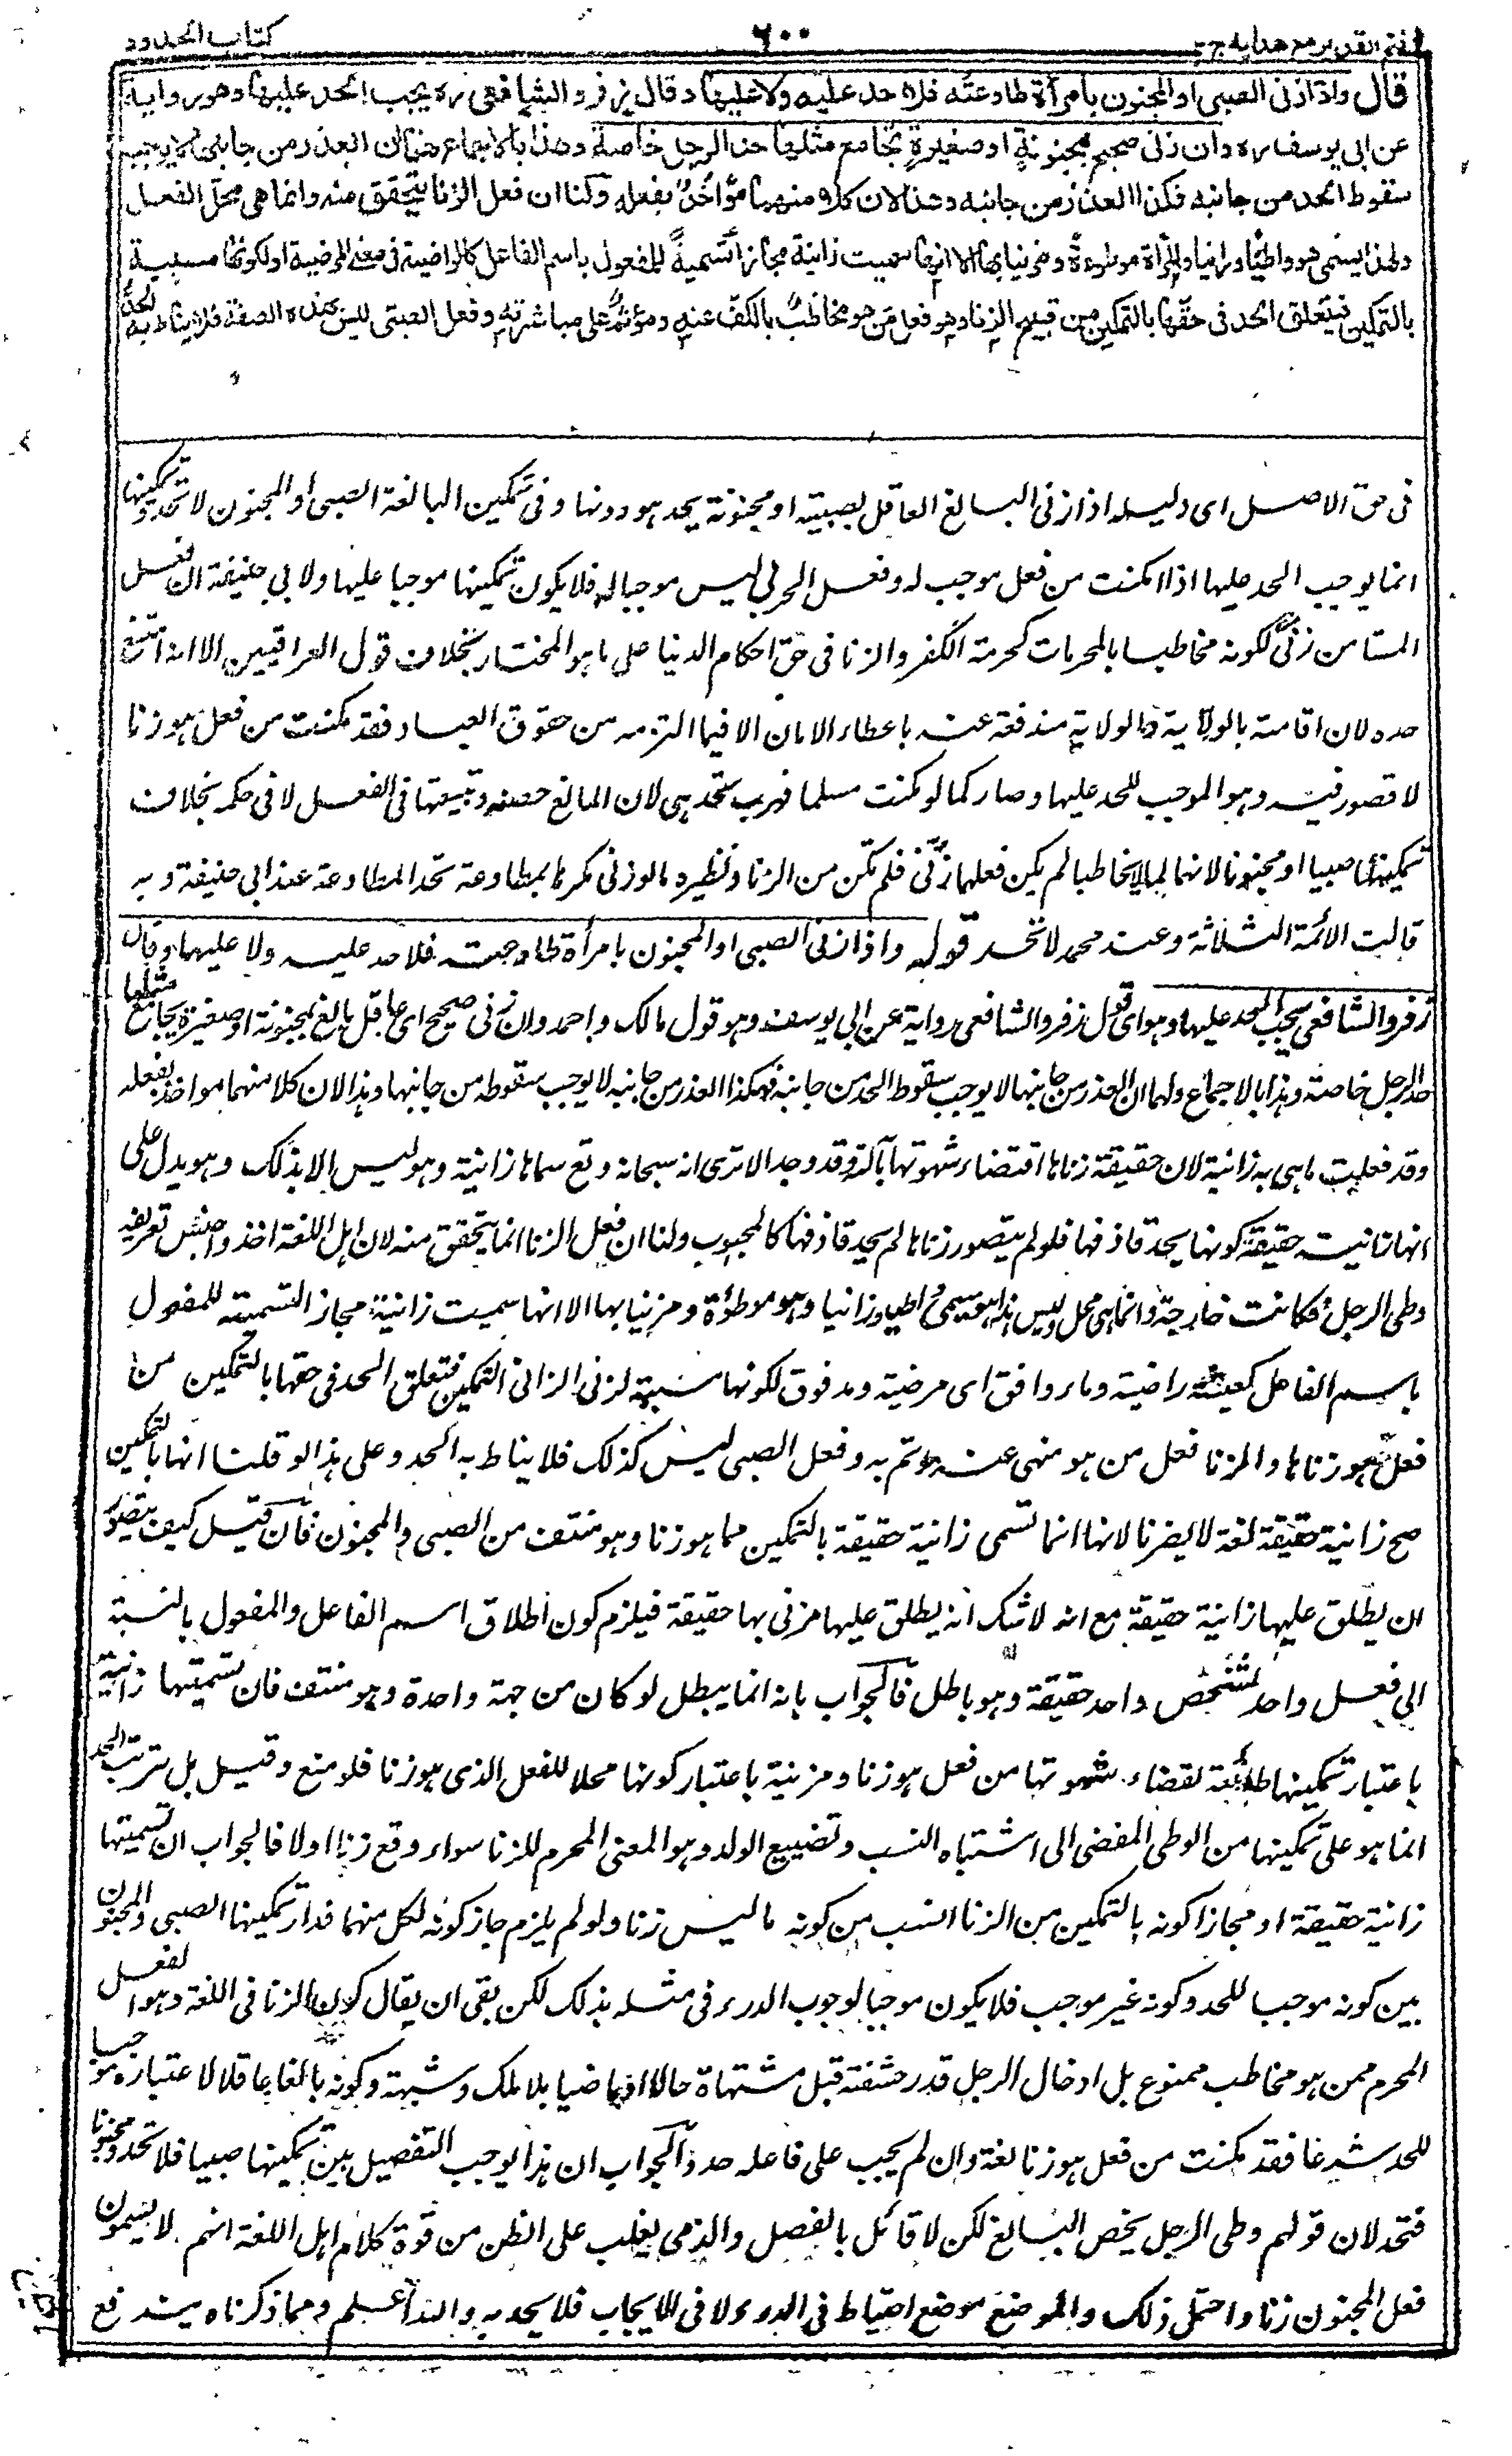 فتح القدير مع هدايه ج ٢
٦٠٠
كتاب الحدود
قال واذا زنى الصبى او المجنون بامرأة طاوعته فلا حد عليه ولا عليها وقال زفر والشافعى ره يجب الحد عليها وهو رواية
عن ابى يوسف ره وان زنى صحيح بمجنونة او صغيرة تجامع مثلها حد الرجل خاصة وهذا بالاجماع لهما ان العذر من جانبها لا يوجب
سقوط الحد من جانبه فكذا العذر من جانبه وهذا لان كلا منهما مؤاخذ بفعله ولنا ان فعل الزنا يتحقق منه وانما هى محل الفعل
ولهذا يسمى هو واطيا وزانيا والمرأة موطوءة ومزنيا بها الا انها سميت زانية مجازا تسمية للمفعول باسم الفاعل كالراضية فى معنى المرضية او لكونها مسببة
بالتمكين فيتعلق الحد فى حقها بالتمكين من قبيح الزنا وهو فعل من هو مخاطب بالكف عنه ومؤثم على مباشرته وفعل الصبى ليس بهذه الصفة فلا يناط به الحد
فى حق الاصل اى دليله اذا زنى البالغ العاقل بصبية او مجنونة يحد هو دونها وفى تمكين البالغة الصبى او المجنون لا تحد وتمكينها
انما يوجب الحد عليها اذا امكنت من فعل موجب له وفعل الحربى ليس موجبا له فلا يكون تمكينها موجبا عليها ولابى حنيفة ان فعل
المستامن زنى لكونه مخاطبا بالمحرمات كحرمة الكفر والزنا فى حق احكام الدنيا على ما هو المختار بخلاف قول العراقيين الا انه امتنع
حده لان اقامته بالولاية والولاية مندفعة عنه باعطاء الامان الا فيما التزمه من حقوق العباد فقد مكنت من فعل هو زنا
لا قصور فيه وهو الموجب للحد عليها وصار كما لو مكنت مسلما فهرب تحد هى لان المانع خصه وتبعيتها فى الفعل لا فى حكمه بخلاف
تمكينها صبيا او مجنونا لانهما لما لم يخاطبا لم يكن فعلهما زنى فلم تمكن من الزنا ونظيره ما لو زنى مكرها بمطاوعة تحد المطاوعة عند ابى حنيفة وبه
قالت الائمة الثلاثة وعند محمد لا تحد قوله واذا زنى الصبى او المجنون بامرأة طاوعته فلا حد عليه ولا عليها وقال
زفر والشافعى يجب الحد عليها وهو اى قول زفر والشافعى رواية عن ابى يوسف وهو قول مالك واحمد وان زنى صحيح اى عاقل بالغ بمجنونة او صغيرة يجامع مثلها
حد الرجل خاصة وهذا بالاجماع ولهما ان العذر من جانبها لا يوجب سقوط الحد من جانبه فكذا العذر من جانبه لا يوجب سقوطه من جانبها وهذا لان كلا منهما مواخذ بفعله
وقد فعلت ما هى به زانية لان حقيقة زناها اقتضاء شهوتها بآلته وقد وجد الا ترى انه سبحانه وتع سماها زانية وهو ليس الا بذلك وهو يدل على
انها زانية حقيقة كونها يحد قاذفها فلو لم يتصور زناها لم يحد قاذفها كالمجبوب ولنا ان فعل الزنا انما يتحقق منه لان اهل اللغة اخذوا جنس تعريفه
وطى الرجل فكانت خارجة وانما هى محل وليس هذا هو يسمى واطيا وزانيا وهو موطوءة ومزنيا بها الا انها سميت زانية مجازا لتسميته للمفعول
باسم الفاعل كعيشة راضية وماء دافق اى مرضية ومدفوق لكونها مسببة لزنى الزانى التمكين فتعلق الحد فى حقها بالتمكين من
فعل هو زناها والزنا فعل من هو منهى عنه مؤثم به وفعل الصبى ليس كذلك فلا يناط به الحد وعلى هذا لو قلنا انها بالتمكين
صح زانية حقيقة لغة لا يضرنا لانها انما تسمى زانية حقيقة بالتمكين مما هو زنا وهو منتف من الصبى والمجنون فان قيل كيف يتصور
ان يطلق عليها زانية حقيقة مع انه لا شك انه يطلق عليها مزنى بها حقيقة فيلزم كون اطلاق اسم الفاعل والمفعول بالنسبة
الى فعل واحد لشخص واحد حقيقة وهو باطل فالجواب بانه انما يبطل لو كان من جهة واحدة وهو منتف فان تسميتها زانية
باعتبار تمكينها طائعة لقضاء شهوتها من فعل هو زنا ومزنية باعتبار كونها محلا للفعل الذى هو زنا فلو منع وقيل بل ترتب الحد
انما هو على تمكينها من الوطى المفضى الى اشتباه النسب وتضييع الولد وهو المعنى المحرم للزنا سواء وقع زنا اولا فالجواب ان تسميتها
زانية حقيقة او مجازا كونه بالتمكين من الزنا انسب من كونه ما ليس زنا ولو لم يلزم جاز كونه لكل منهما فدار تمكينها الصبى والمجنون
بين كونه موجبا للحد وكونه غير موجب فلا يكون موجبا لوجوب الدرء فى مثله بذلك لكن بقى ان يقال كون الزنا فى اللغة هو الفعل
المحرم ممن هو مخاطب ممنوع بل ادخال الرجل قدر حشفته قبل مشتهاة حالا او ماضيا بلا ملك وشبهة وكونه بالغا عاقلا لاعتباره موجبا
للحد شرعا فقد مكنت من فعل هو زنا لغة وان لم يجب على فاعله حد والجواب ان هذا يوجب التفصيل بين تمكينها صبيا فلا تحد ومجنونا
فتحد لان قولهم وطى الرجل يخص البالغ لكن لا قائل بالفصل والذى يغلب على الظن من قوة كلام اهل اللغة انهم لا يسمون
فعل المجنون زنا واحتمل ذلك والموضع موضع احتياط فى الدرء لا فى الايجاب فلا يحد به والله اعلم ومما ذكرناه يندفع